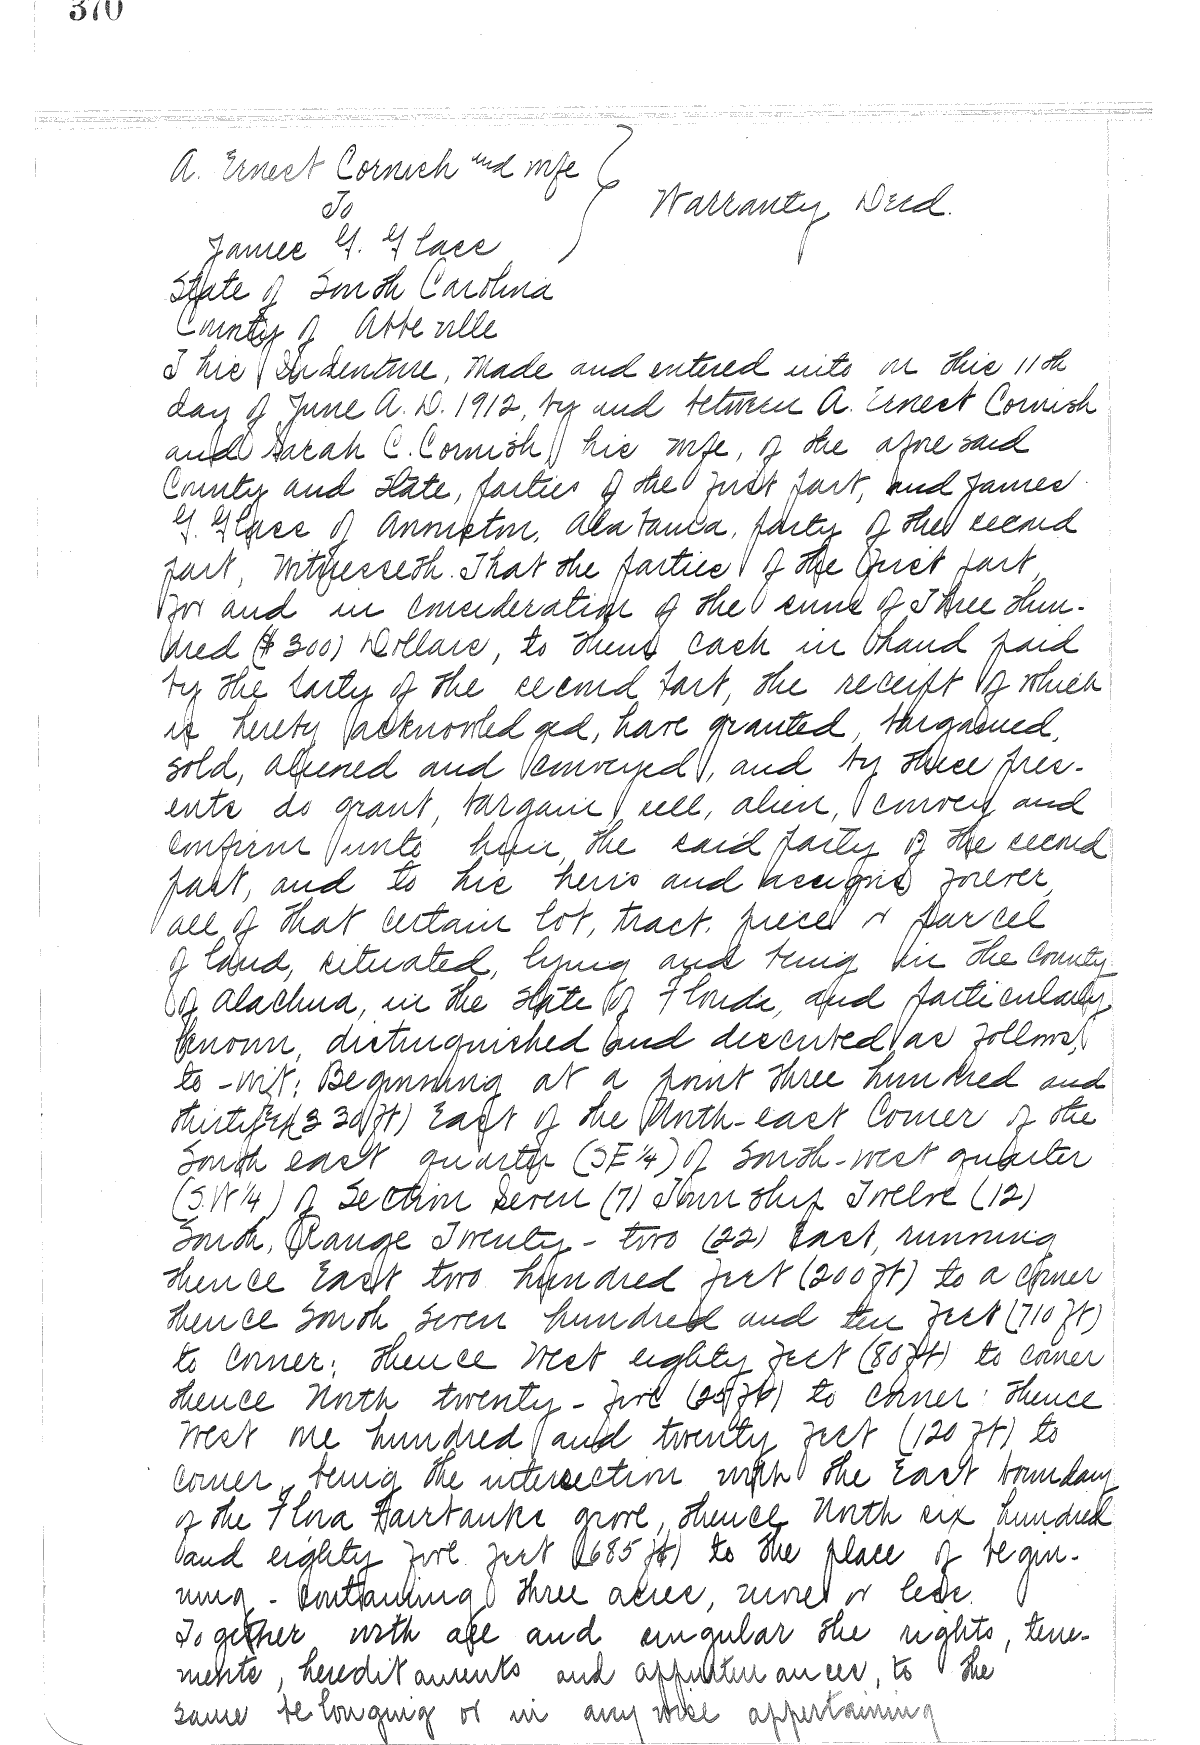 370
A. Ernest Cornish and wife
To
James G. Glass
Warranty Deed.
State of South Carolina
County of Abbeville
This Indenture, Made and entered into on this 11th
day of June A.D. 1912, by and between A. Ernest Cornish
and Sarah C. Cornish, his wife, of the aforesaid
County and State, parties of the first part, and James
G. Glass of Anniston, Alabama, party of the second
part, Witnesseth. That the parties of the first part,
for and in consideration of the sum of Three Hun-
dred ($300) Dollars, to them cash in hand paid
by the party of the second part, the receipt of which
is hereby acknowledged, have granted, bargained,
sold, aliened and conveyed, and by these pres-
ents do grant, bargain, sell, alien, convey and
confirm unto him, the said party of the second
part, and to his heirs and assigns forever,
all of that certain lot, tract, piece or parcel
of land, situated, lying and being in the County
of Alachua, in the State of Florida, and particularly
known, distinguished and described as follows,
to-wit: Beginning at a point three hundred and
thirty (330 ft) East of the North-east Corner of the
South east quarter (SE 1/4) of South-west quarter
(S.W 1/4) of Section Seven (7) Township Twelve (12)
South, Range Twenty-two (22) East, running
thence East two hundred feet (200 ft) to a corner
thence South seven hundred and ten feet (710 ft)
to corner; thence West eighty feet (80 ft) to corner
thence North twenty-five (25 ft) to corner: thence
West one hundred and twenty feet (120 ft) to
corner, being the intersection with the East boundary
of the Flora Fairbanks grove, thence North six hundred
and eighty five feet (685 ft) to the place of begin-
ning - containing three acres, more or less.
Together with all and singular the rights, tene-
ments, hereditaments and appurtenances, to the
same belonging or in any wise appertaining